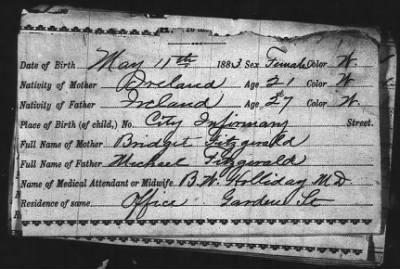 Date of Birth May 11th 1883 Sex Female Color W.
Nativity of Mother Ireland Age 21 Color W
Nativity of Father Ireland Age 27 Color W.
Place of Birth (of child,) No. City Infirmary Street.
Full Name of Mother Bridget Fitzgerald
Full Name of Father Michael Fitzgerald
Name of Medical Attendant or Midwife B. W. Holliday M.D.
Residence of same Office Garden St